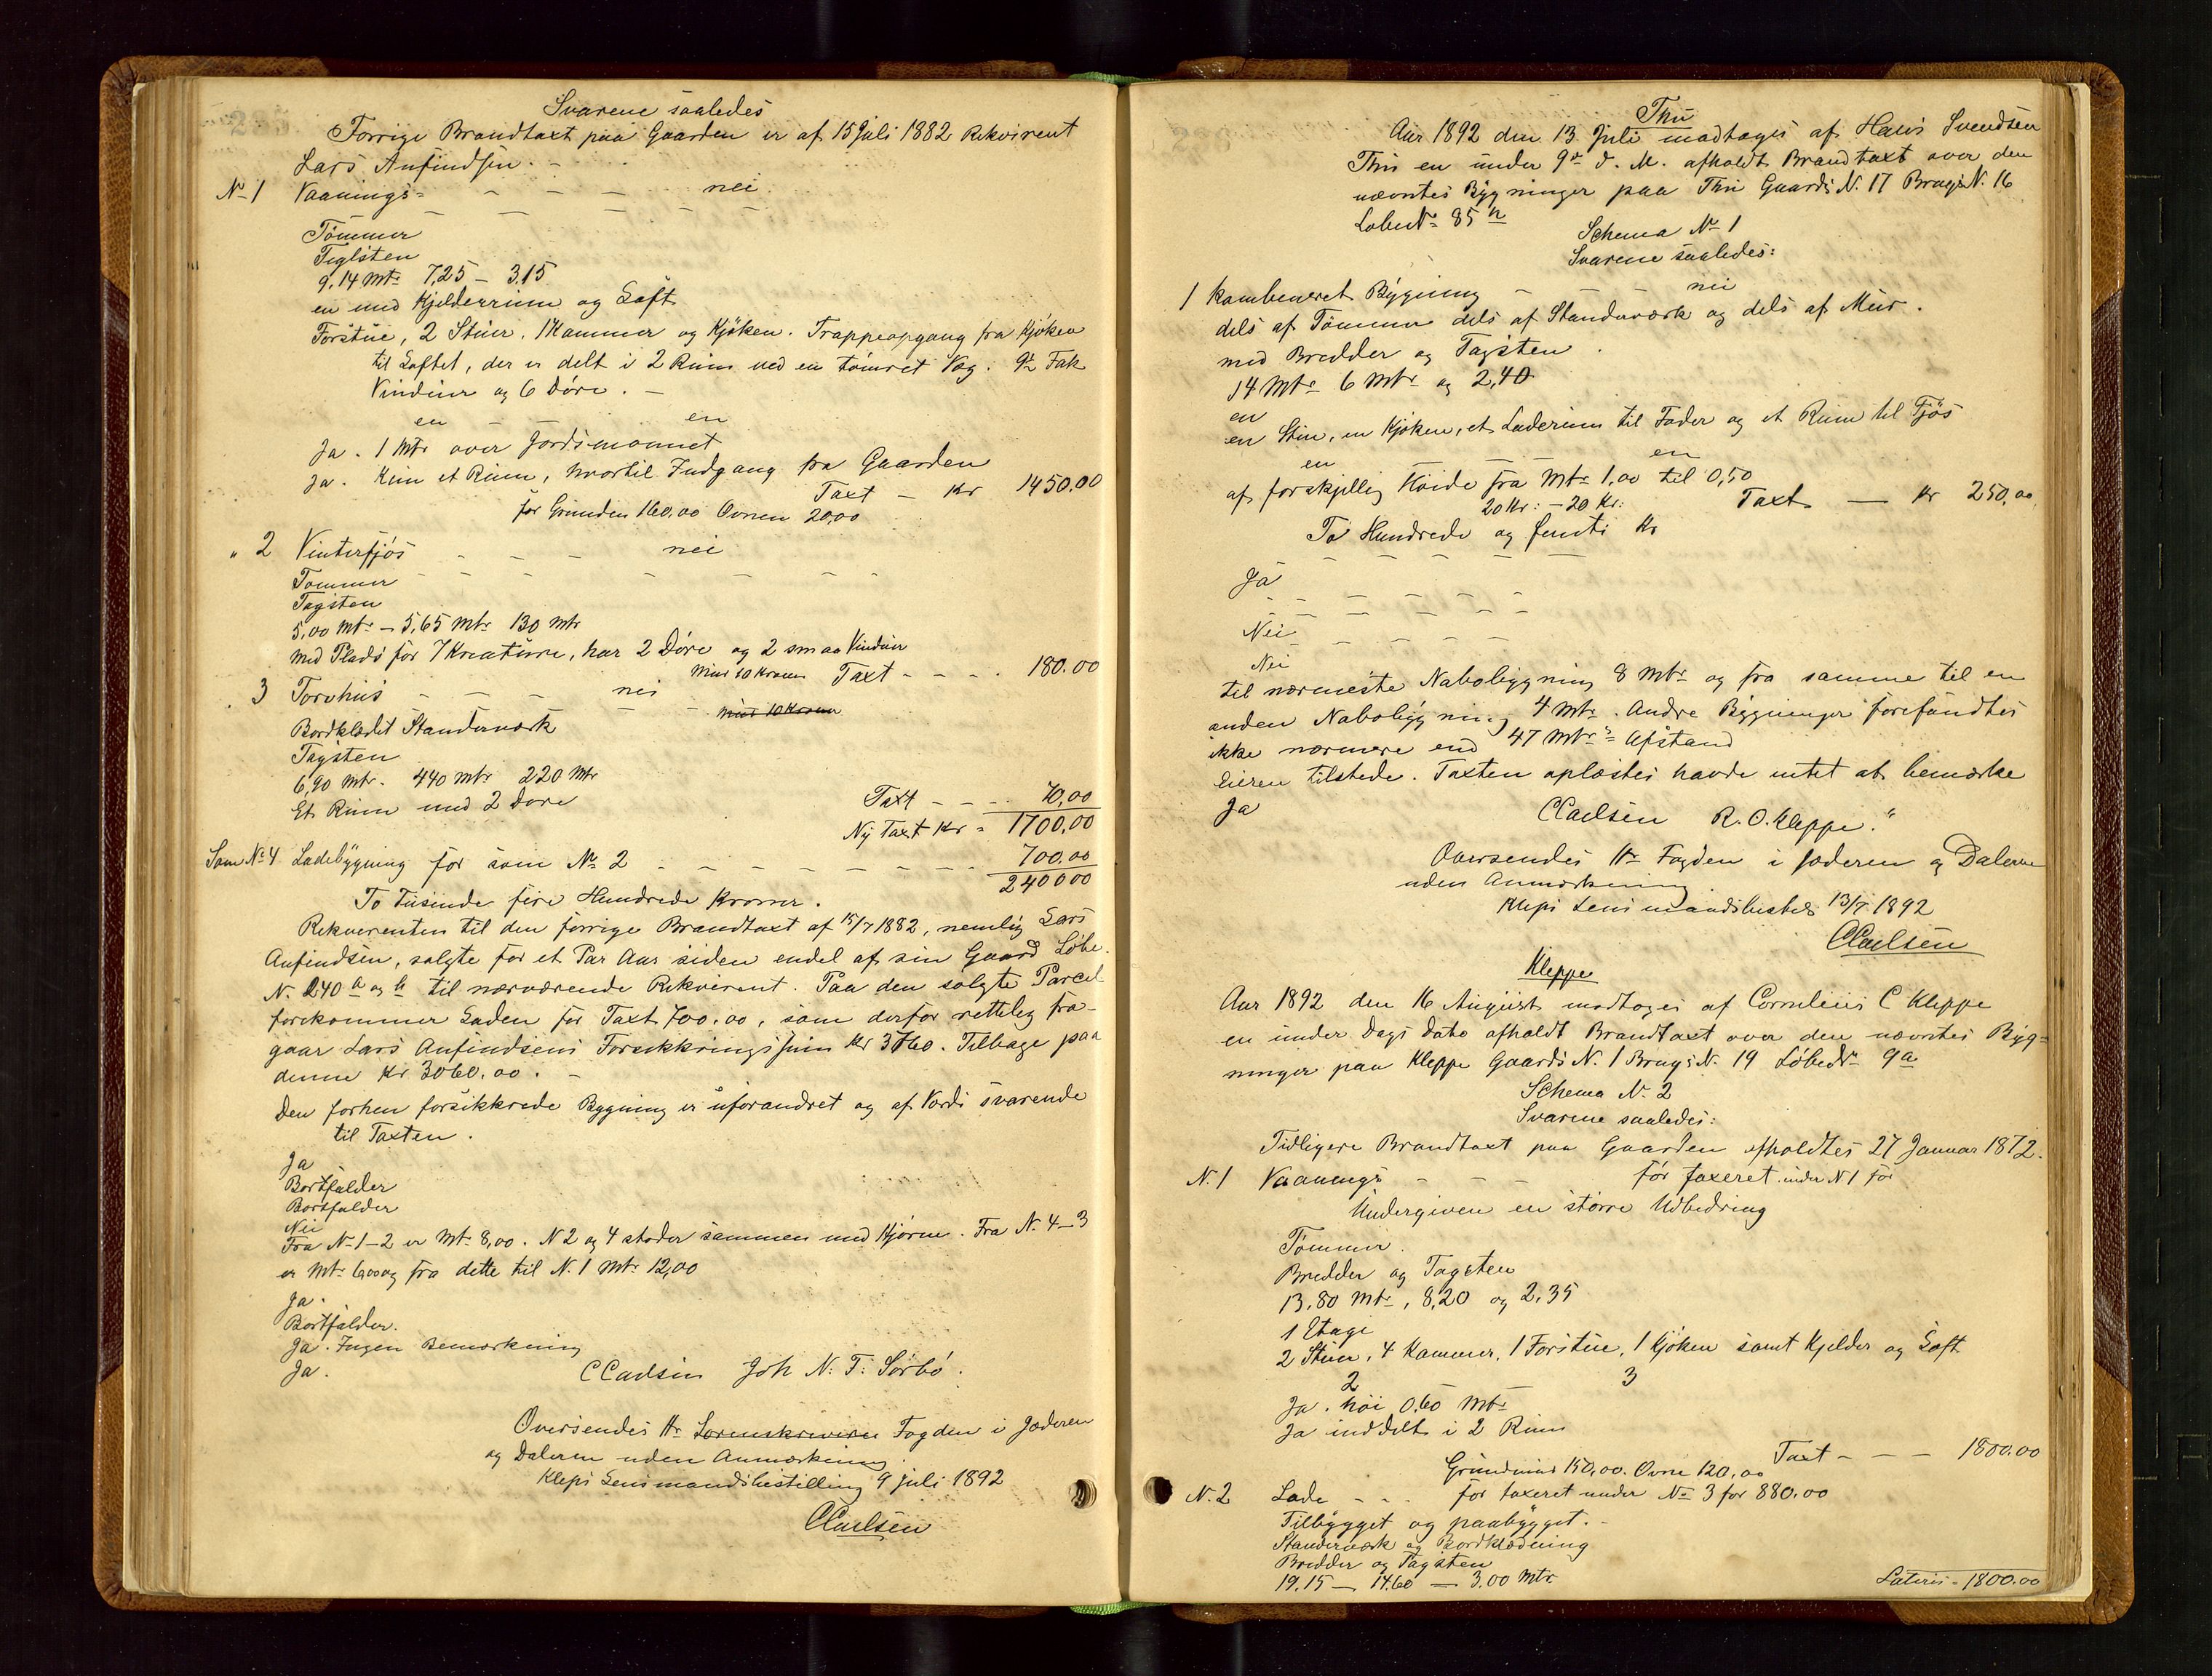 Svarene saaledes
Forrige Brandtaxt paa Gaarden er af 15 juli 1882 Rekvirent
Lars Anfindsen. -
No 1 Vaanings- - - - nei
Tömmer
Teglsten
9,14 Mtr 7,25 - 3.15
en med Kjelderrum og Loft
Forstue, 2 Stuer, 1 Kammer og Kjöken. Trappeopgang fra Kjöken
til Loftet, der er delt i 2 Rum ved en tömret Væg. 9½ Fak
Vinduer og 6 Döre. -
en en
Ja. 1 Mtr over Jordsmonnet
Ja. Kun et Rum, hvortil Indgang fra Gaarden
Taxt - Kr 1450.00
for Grunden 160,00 Ovnen 20,00
" 2 Vinterfjös - - - nei
Tömmer
Tagsten
5,00 Mtr - 5,65 Mtr 130 Mtr
med Plads for 7 Kreature, har 2 Döre og 2 smaa Vinduer
Mur 10 Kroner Taxt - - - 180.00
" 3 Torvhus - - - nei
Mur 10 Kroner
Bordklædt Standerværk
Tagsten
6,90 Mtr. 440 Mtr 220 Mtr
Et Rum med 2 Döre
Taxt - - - 70,00
Ny Taxt Kr = 1700,00
Som No 4 Ladebygning för som No 2 - - - - - - 700.00
2400 00
To Tusinde fire Hundrede Kroner.
Rekverenten til den forrige Brandtaxt af 15/7 1882, nemlig Lars
Anfindsen, solgte for et Par Aar siden endel af sin Gaard Löbe
N. 240 a og b til nærværende Rekvirent. Paa den solgte Parcel
forekommer Laden för Taxt 700.00, som derfor rettelig fra-
gaar Lars Anfindsens Forsikkringssum Kr 3760. Tilbage paa
denne Kr. 3060.00. -
Den forhen forsikkrede Bygning er uforandret og af Værdi svarende
til Taxten.
Ja
Bortfalder
Bortfalder
Nei
Fra No 1-2 er Mtr 8,00. N 2 og 4 stöder sammen med Hjörne. Fra N. 4-3
er Mtr 6,00 og fra dette til N. 1 Mtr 12,00
Ja.
Bortfalder.
Ja. Ingen Bemærkning
Ja.
CCarlsen Joh N. T. Sörbö.
Oversendes Hr Sorenskriveren Fogden i Jæderen
og Dalerne uden Anmærkning.
Kleps Lensmandsbestilling 9 juli 1892
CCarlsen
Thu
Aar 1892 den 13. Juli modtages af Hans Svendsen
Thu en under 9de d. M. afholdt Brandtaxt over den
nævntes Bygninger paa Thu Gaards N. 17 Brugs N. 16
LöbeNo 85
Schema No 1
Svarene saaledes:
1 kombeneret Bygning - - - nei
dels af Tömmer dels af Standerværk og dels af Mur.
med Bredder og Tagsten.
14 Mtr 6 Mtr og 2,40
en
en Stue, en Kjöken, et Laderum til Foder og et Rum til Fjös
en en
af forskjellig Höide fra Mtr 1,00 til 0,50
20 Kr: - 20 Kr: Taxt - Kr 250,00
To Hundrede og femti Kr
Ja
Nei
Nei
til nærmeste Nabobygning 8 Mtr og fra samme til en
anden Nabobygning 4 Mtr. Andre Bygninger forefandtes
ikke nærmere end 47 Mtr's Afstand
Eieren tilstede. Taxten oplæstes havde intet at bemærke
Ja
CCarlsen R. O. Kleppe."
Oversendes Hr Fogden i Jæderen og Dalerne
uden Anmærkning.
Kleps Lensmandsbestill 13/7 1892
CCarlsen
Kleppe
Aar 1892 den 16 August modtages af Cornelius C Kleppe
en under Dags Dato afholdt Brandtaxt over den nævntes Byg=
ninger paa Kleppe Gaards N. 1 Brugs N. 19 LöbeNr 9a
Schema N. 2
Svarene saaledes:
Tidligere Brandtaxt paa Gaarden afholdtes 27 Januar 1872.
N. 1 Vaanings - - - för taxeret under N 1 för
Undergiven en större Udbedring
Tömmer.
Bredder og Tagsten
13.80 Mtr, 8,20 og 2,35
1 Etage
2 Stuer, 4 Kammer, 1 Forstue, 1 Kjöken samt Kjelder og Loft
2 3
Ja. höi 0.60 Mtr
Ja inddelt i 2 Rum
Taxt - - - 1800.00
Grundmur 150,00. Ovne 120,00
N. 2 Lade - - - för taxeret under No 3 for 880.00
Tilbygget og paabygget. -
Standerværk og Bordklædning
Bredder og Tagsten
19.15 - 14.60 - 3.00 Mtr
Lateris - 1800.00